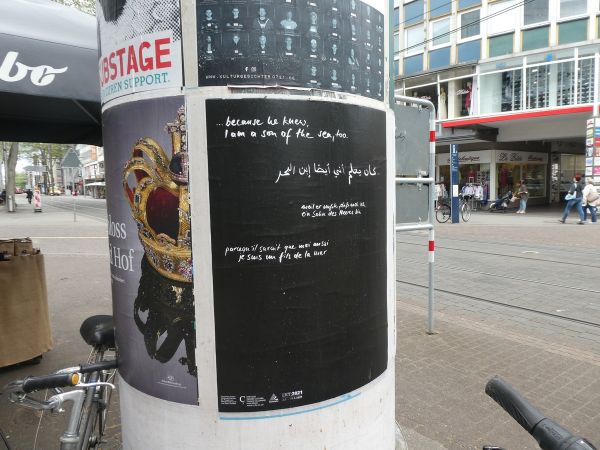 UBSTAGE
EREN SUPPORT.
bo
...because he knew,
I am a son of the sea, too.
كان يعلم أني أيضا إبن البحر...
weil er wußte, daß auch ich
ein Sohn des Meeres bin
parce qu'il savait que moi aussi
je suis un fils de la mer
loss
Hof
C